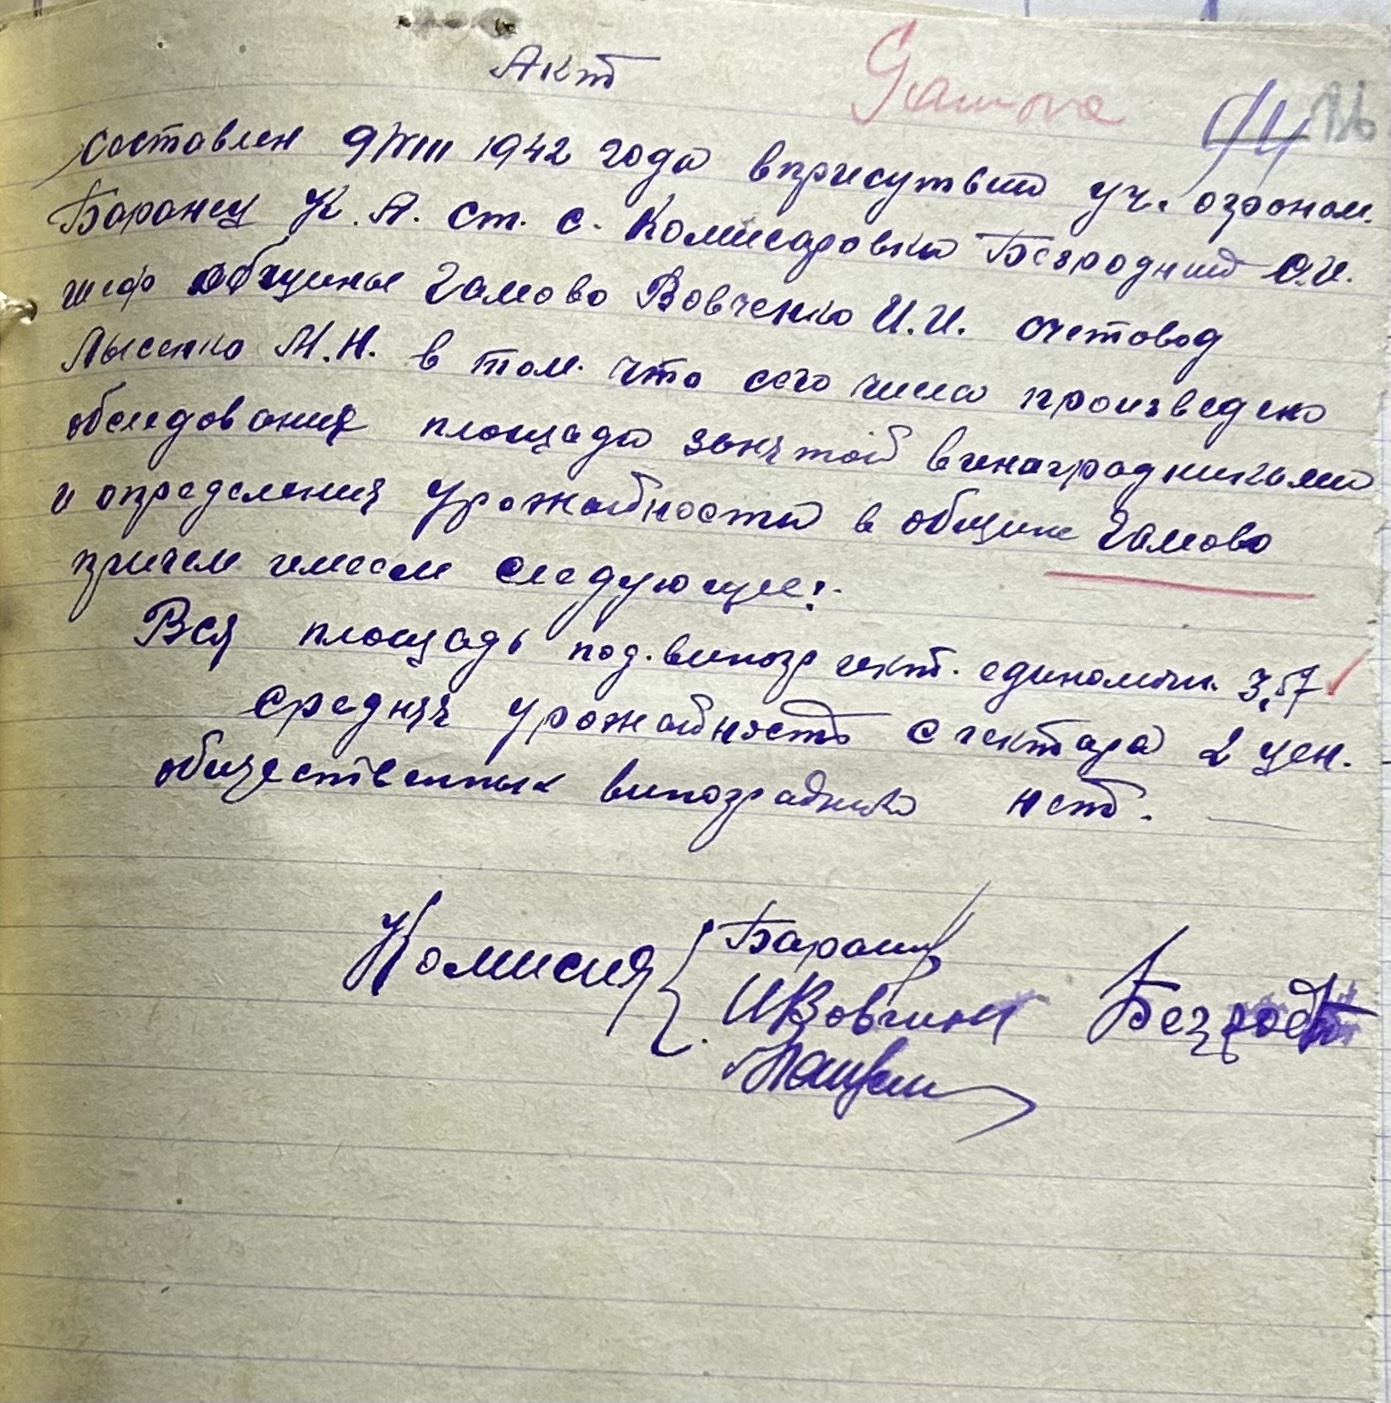 Акт
Gamova
94
составлен 9/VIII 1942 года вприсутвии уч. агроном.
Баранец К. А. ст. с. Комисаровка Безродний О.И.
шеф общины Гамово Вовченко И.И. счетовод
Лысенко М.Н. в том что сего числа произведено
обследования площади занятой винаградниками
и определения урожайности в общине Гамово
причем имеем следующее:
Вся площадь под.виногр гект. единоличн. 3,57
средняя урожайность с гектара 2 цен.
общественных виноградников нет.
Комисия Баранец
ИВовчинк Безрод